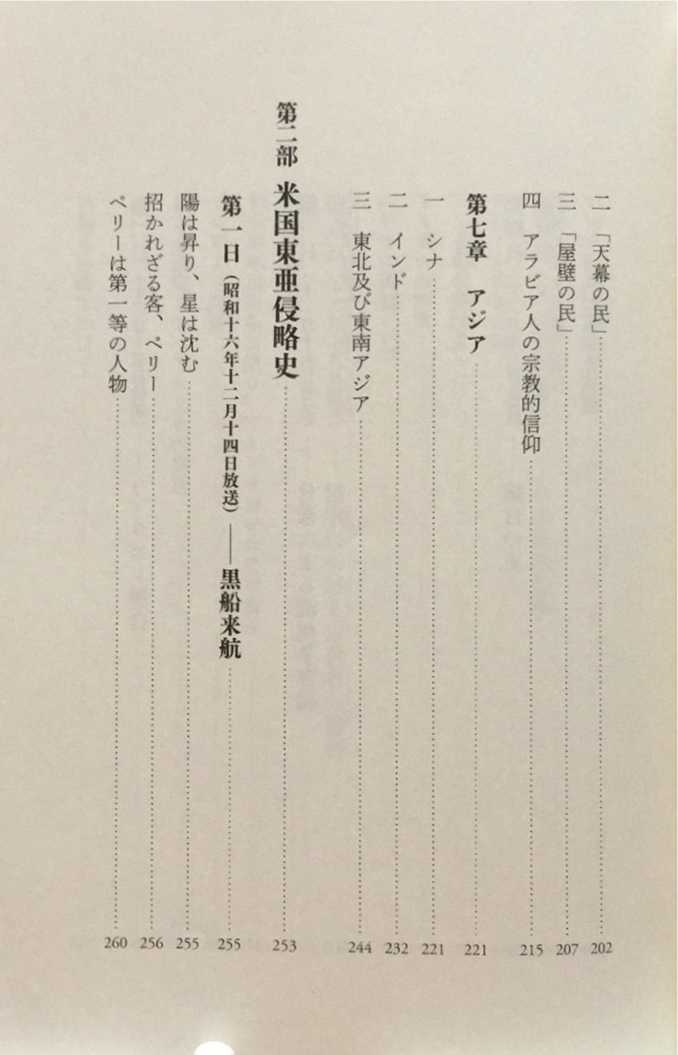 二　「天幕の民」 202
三　「屋壁の民」 207
四　アラビア人の宗教的信仰 215
第七章　アジア 221
一　シナ 221
二　インド 232
三　東北及び東南アジア 244
第二部　米国東亜侵略史 253
第一日（昭和十六年十二月十四日放送）――黒船来航 255
陽は昇り、星は沈む 255
招かれざる客、ペリー 256
ペリーは第一等の人物 260